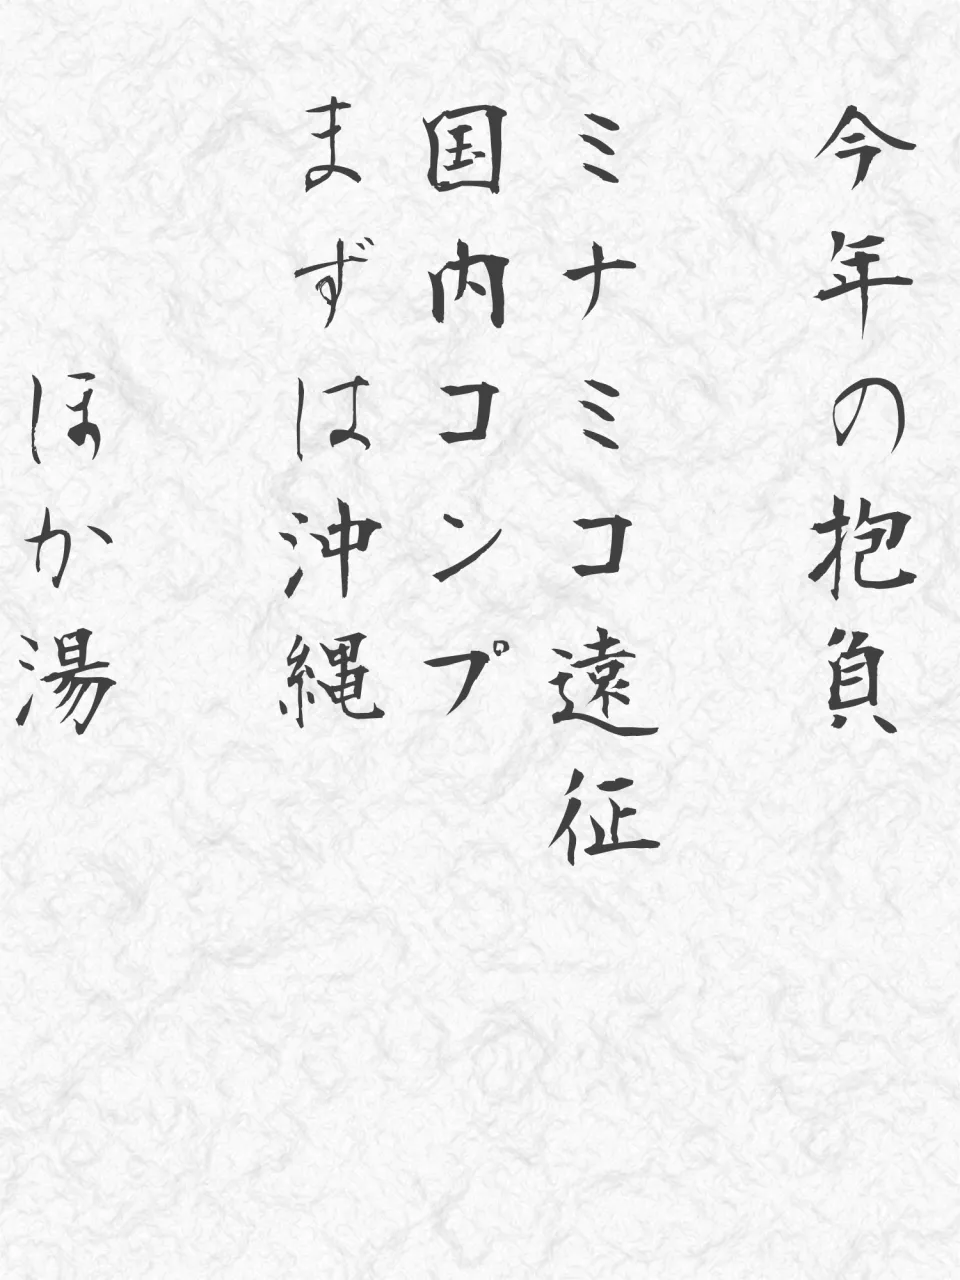 今年の抱負
ミナミコ遠征
国内コンプ
まずは沖縄
ほか湯